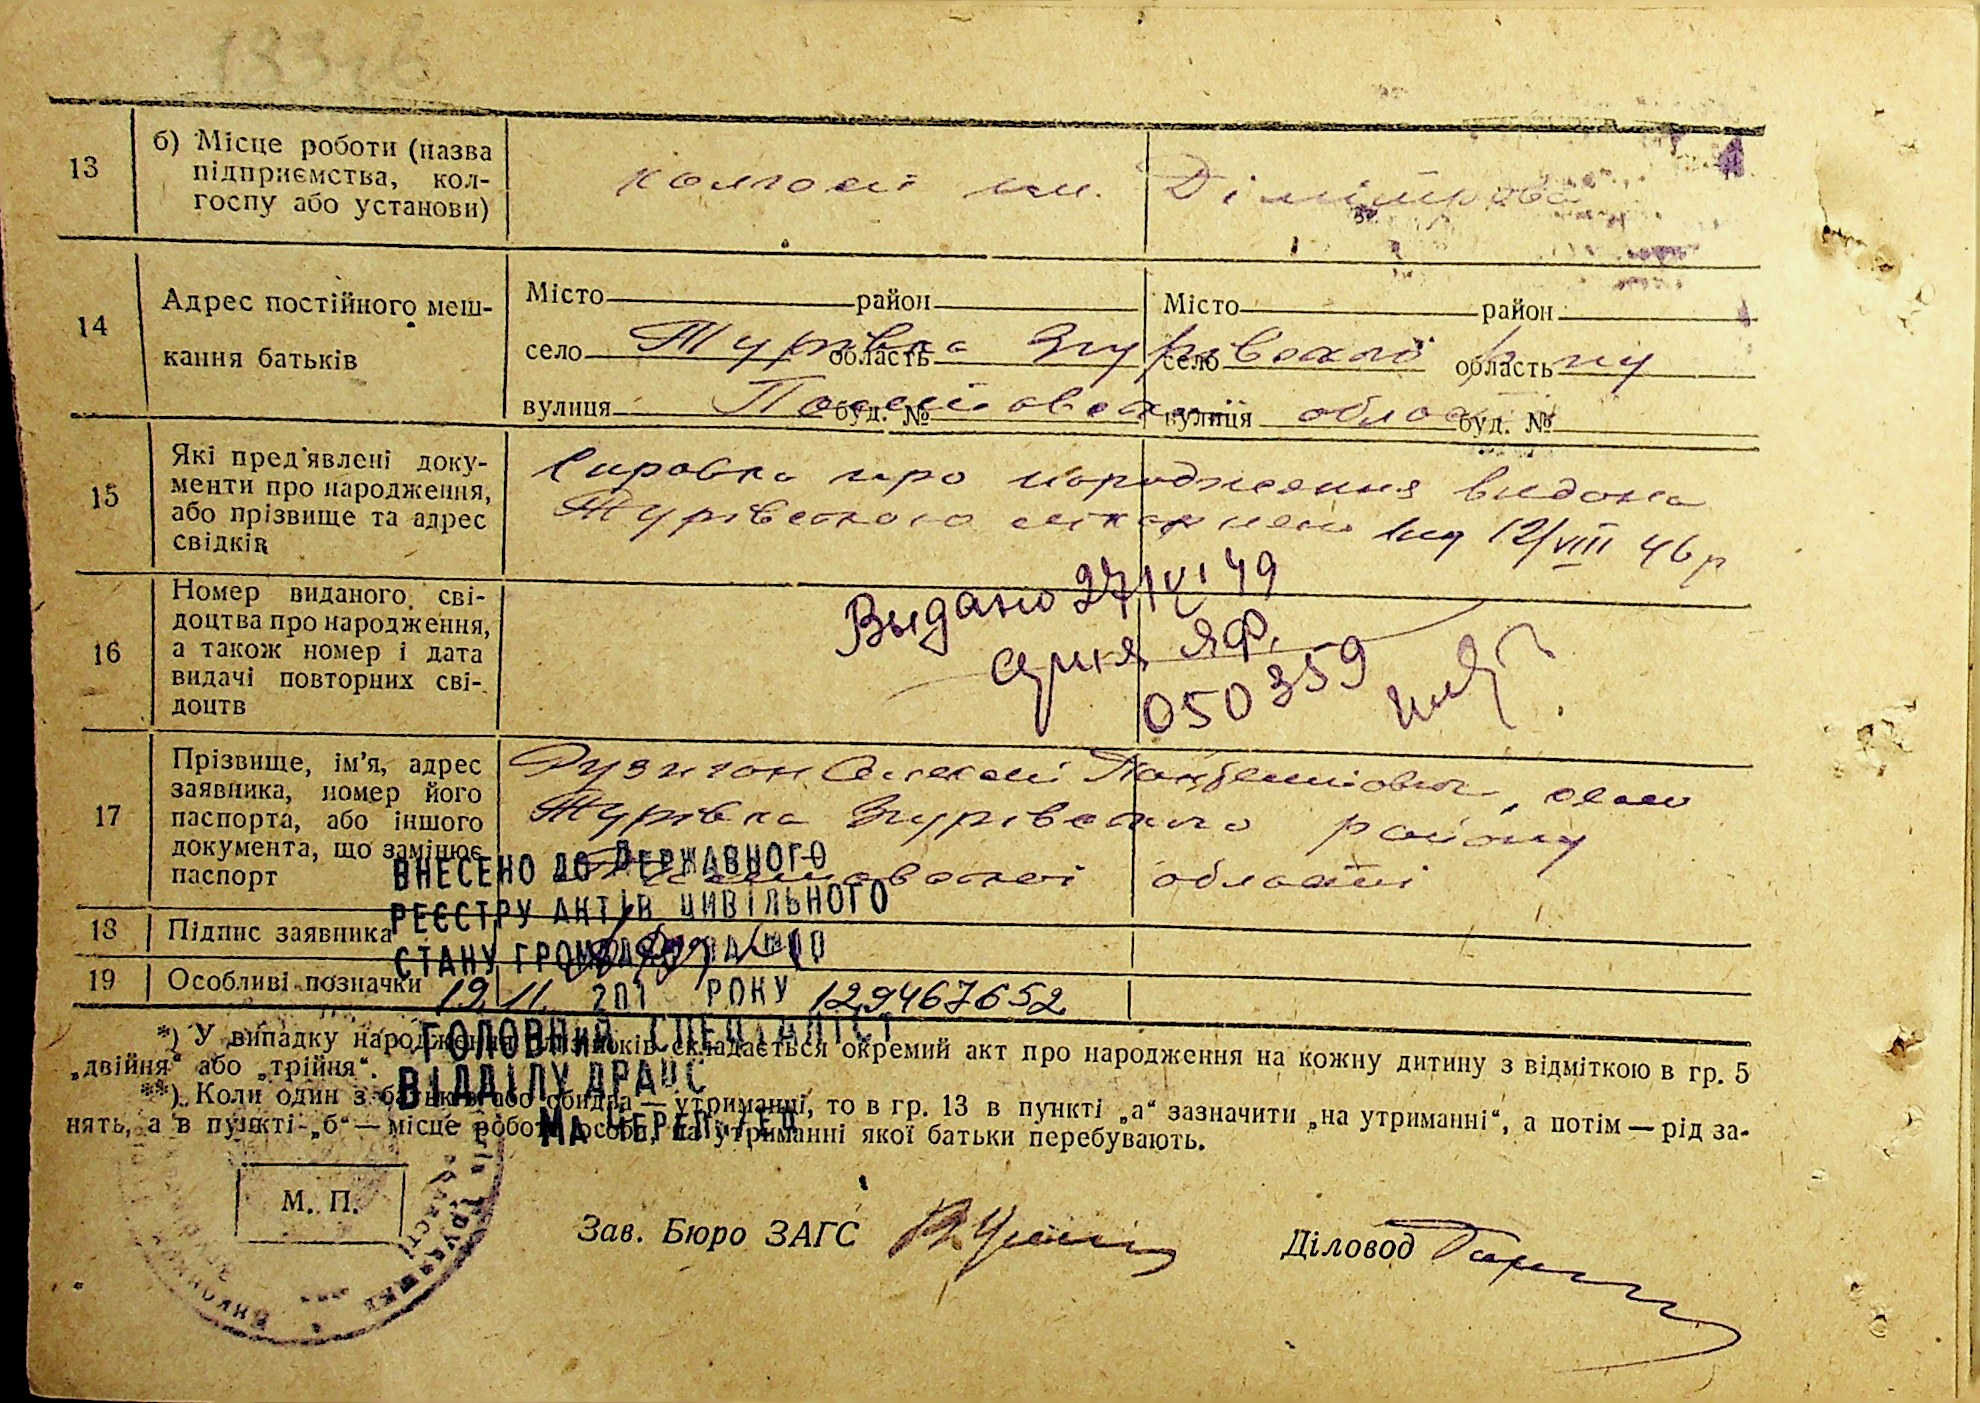 13
б) Місце роботи (назва
підприємства, кол-
госпу або установи)
колгосп им. Дімітрова
14
Адрес постійного меш-
кання батьків
Місто район Місто район
село Турівка область Згурівського село р-ну область
вулиця буд. № Полтавської вулиця області буд. №
15
Які пред'явлені доку-
менти про народження,
або прізвище та адрес
свідків
Справка про народження видана
Турівською лікарнею від 12/VIII 46 р
16
Номер виданого сві-
доцтва про народження,
а також номер і дата
видачі повторних сві-
доцтв
Выдано 27/ 49
серия ЯФ.
050359
17
Прізвище, ім'я, адрес
заявника, номер його
паспорта, або іншого
документа, що замінює
паспорт
Олексій село
Турівка Згурівського району
Полтавської області
ВНЕСЕНО ДО ДЕРЖАВНОГО
РЕЄСТРУ АКТІВ ЦИВІЛЬНОГО
СТАНУ ГРОМАДЯН
18
Підпис заявника
19
Особливі позначки
19. 11. 201 РОКУ 129467652
ГОЛОВНИЙ СПЕЦІАЛІСТ
ВІДДІЛУ ДРАЦС
*) У випадку народження близнюків складається окремий акт про народження на кожну дитину з відміткою в гр. 5
„двійня“ або „трійня“.
**) Коли один з батьків або обидва — утриманні, то в гр. 13 в пункті „а“ зазначити „на утриманні“, а потім — рід за-
нять, а в пункті „б“ — місце роботи особи, на утриманні якої батьки перебувають.
М. П.
Зав. Бюро ЗАГС
Діловод